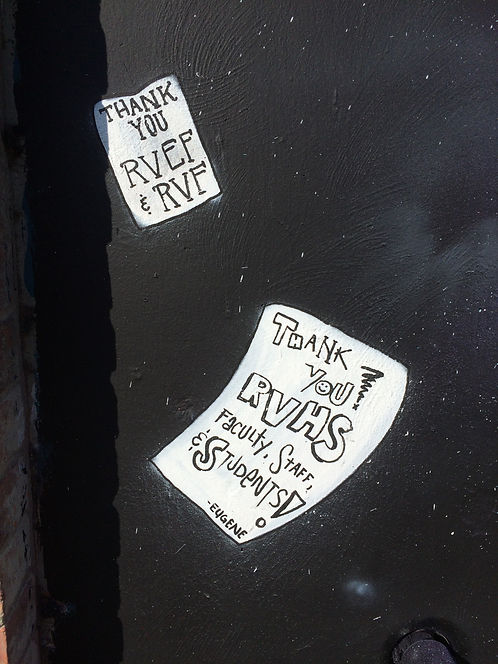 THANK
YOU
RVEF
& RVF
THANK
YOU!
RVHS
FACULTY, STAFF,
& STUDENTS!
-EUGENE